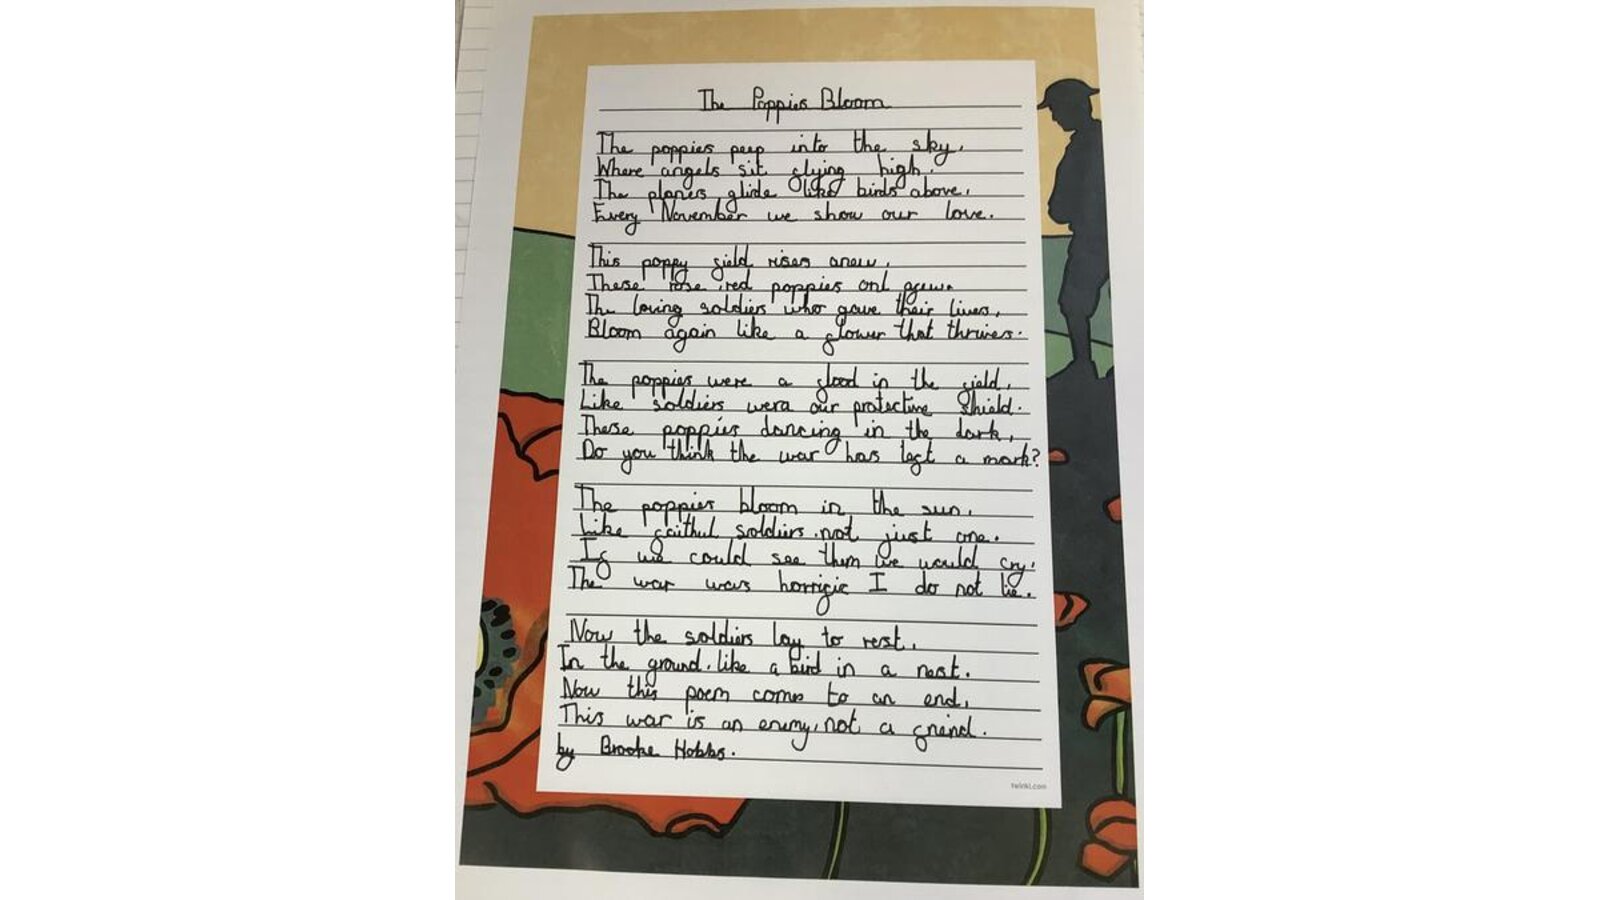 The Poppies Bloom
The poppies peep into the sky,
Where angels sit flying high.
The planes glide like birds above,
Every November we show our love.
This poppy field rises anew,
These rose red poppies only grew.
The loving soldiers who gave their lives,
Bloom again like a flower that thrives.
The poppies were a flood in the field,
Like soldiers were our protective shield.
These poppies dancing in the dark,
Do you think the war has left a mark?
The poppies bloom in the sun,
Like faithful soldiers, not just one.
If we could see them we would cry,
The war was horrific I do not lie.
Now the soldiers lay to rest,
In the ground, like a bird in a nest.
Now this poem comes to an end,
This war is an enemy, not a friend.
by Brooke Hobbs.
twinkl.com